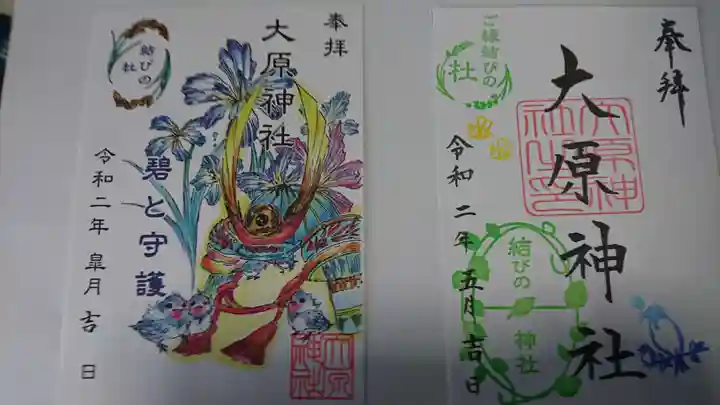 奉拝
大原神社
結びの
杜
碧と守護
令和二年 皐月 吉 日
大原
神社
奉拝
大原神社
ご縁結びの
杜
令和 二年 五月 吉日
結びの
神社
大原神
社之印